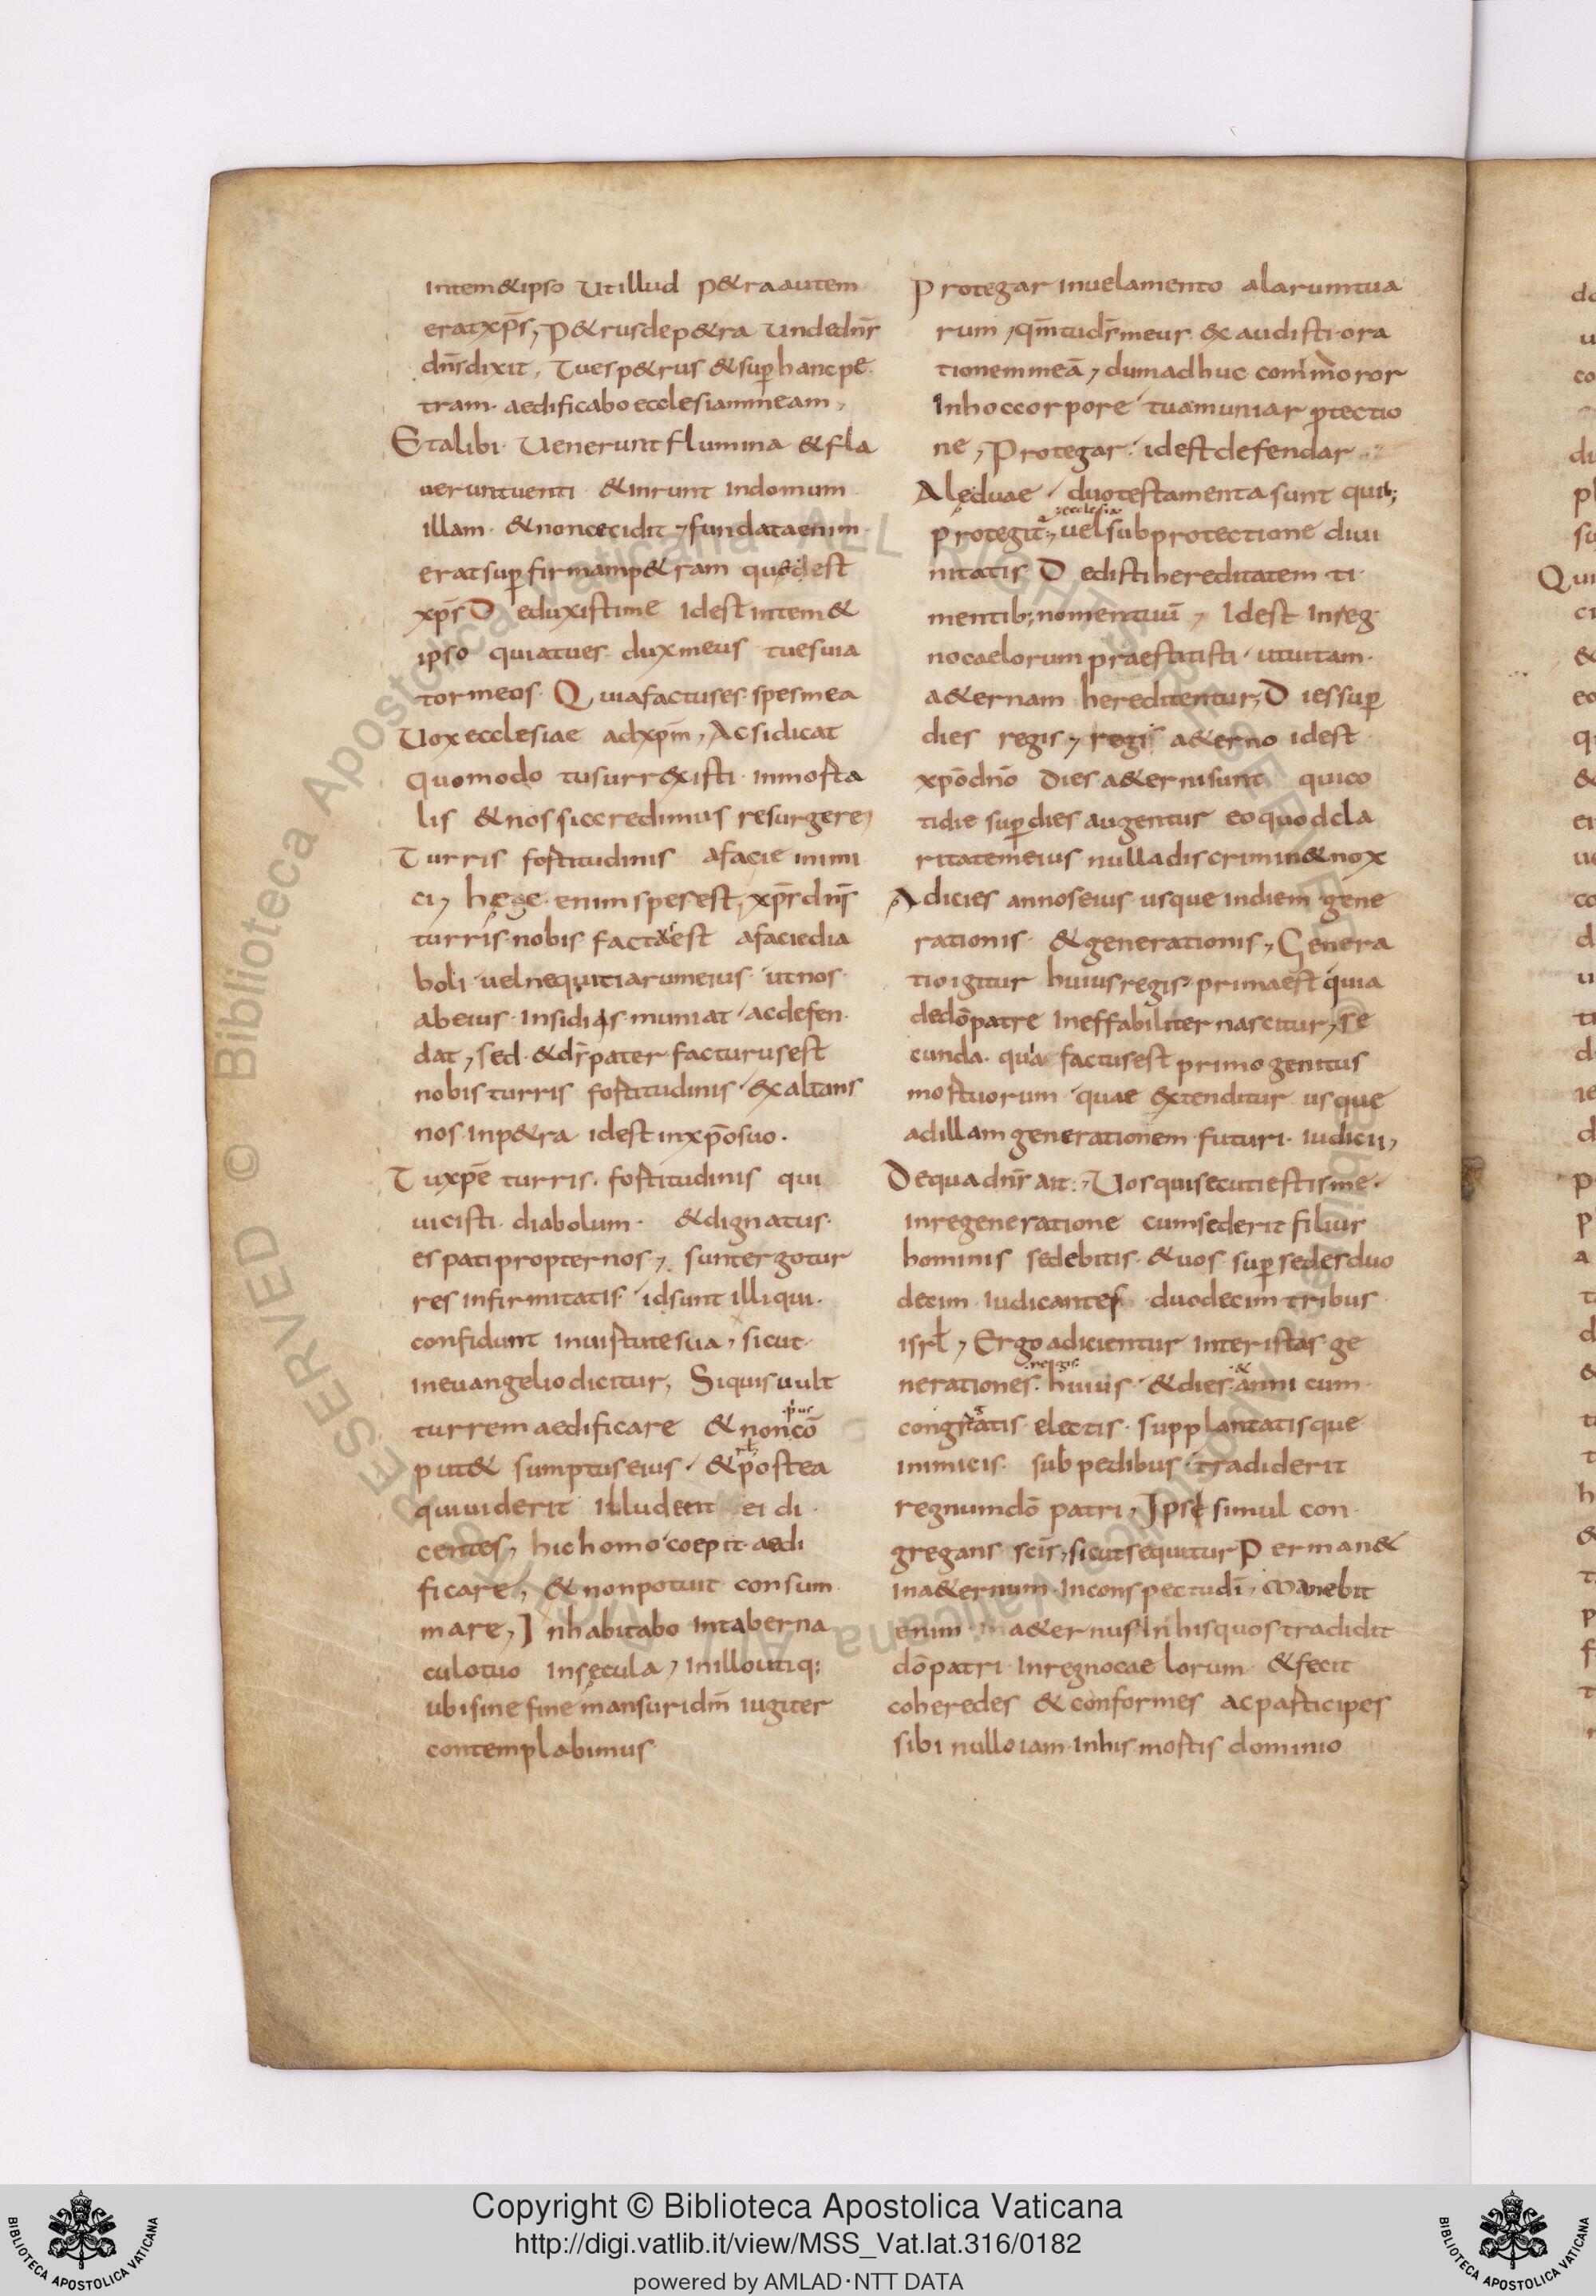 intem&ipso utillud p&raautem
eratxp̄s, P&rusdep&ra undedn̄s
dn̄sdixit, Tuesp&rus &sup̄hancpe
tram· aedificaboecclesiammeam,
Etalibi· Uenerunt flumina &fla
ueruntuenti &inrunt indomum
illam· &noncecidit, fundataenim
eratsup̄firmamp&ram quędest
xp̄s D eduxistime idest intem&
ipso quiatues duxmeus tuesuia
tormeos· Q uiafactuses spesmea
Uox ecclesiae adxp̄m, Acsidicat
quomodo tusurr&xisti· inmorta
lis &nossiccredimus resurgere,
T urris fortitudinis afacie inimi
ci, hęc enimspesest, xp̄s dn̄s
turris nobis factus est afaciedia
boli· uelnequitiarumeius· utnos
abeius· insidiis· muniat· acdefen
dat, sed· &dn̄spater facturusest
nobis turris fortitudinis· exaltans
nos inp&ra idest inxp̄osuo·
T uxp̄e turris· fortitudinis qui
uicisti· diabolum· &dignatus·
es patipropternos, suntergotur
res infirmitatis· idsunt illiqui·
confidunt inuirtutesua, sicut·
ineuangeliodicitur, Siquisuult
p̄us
turremaedificare &noncō
put& sumptuseius· &postea
quiuiderit illudent ei di
centes, hic homo coepit aedi
ficare, &nonpotuit consum
mare, I nhabitabo intaberna
culotuo insęcula, inilloutiq;
ubisinefine mansuridm̄ iugiter
contemplabimus
Protegar inuelamento alarumtua
rum, qm̄tuds̄meus exaudisti·ora
tionemmeā, dumadhuc commoror
inhoccorpore tuamuniar p̄tectio
ne, Protegar· idestdefendar
Alęduae· duotestamenta sunt quib;
ecclesia
protegit·, uelsubprotectione diui
nitatis D edistihereditatem ti
mentib; nomentuū, Idest inreg
nocaelorum praestitisti· utuitam·
a&ernam hereditentur, D iessup̄
dies regis, regis a&erno idest
xp̄odn̄o dies a&ernisunt quico
tidie sup̄dies augentur eoquodcla
ritatemeius nulladiscrimin&nox
Adicies annoseius usque indiem gene
rationis· &generationis, Genera
tioigitur huiusregis· primaest quia
dedōpatre ineffabiliter nascitur, se
cunda· quia factusest primogenitus
mortuorum quae extenditur usque
adillamgenerationem·futuri· iudicii,
Dequadn̄s ait·, Uosquisecutiestisme·
inregeneratione cumsederit filius
hominis sedebitis· &uos sup̄sedesduo
decim iudicantes duodecim tribus
isrl̄, Ergo adicientur interistas·ge
regis· &
nerationes· huius· &dies anni cum
congr̄atis electis· supplantatisque
inimicis· sub pedibus tradiderit
regnumdō patri, Ipse simul con
gregans sc̄is, sicutsequitur P erman&
ina&ernum·inconspectudī, manebit
enim a&ernus in hisquostradidit
dōpatri· inregnocaelorum· &fecit
coheredes &conformes acparticipes
sibi nulloiam·inhis mortis dominio
Copyright © Biblioteca Apostolica Vaticana
http://digi.vatlib.it/view/MSS_Vat.lat.316/0182
powered by AMLAD·NTT DATA